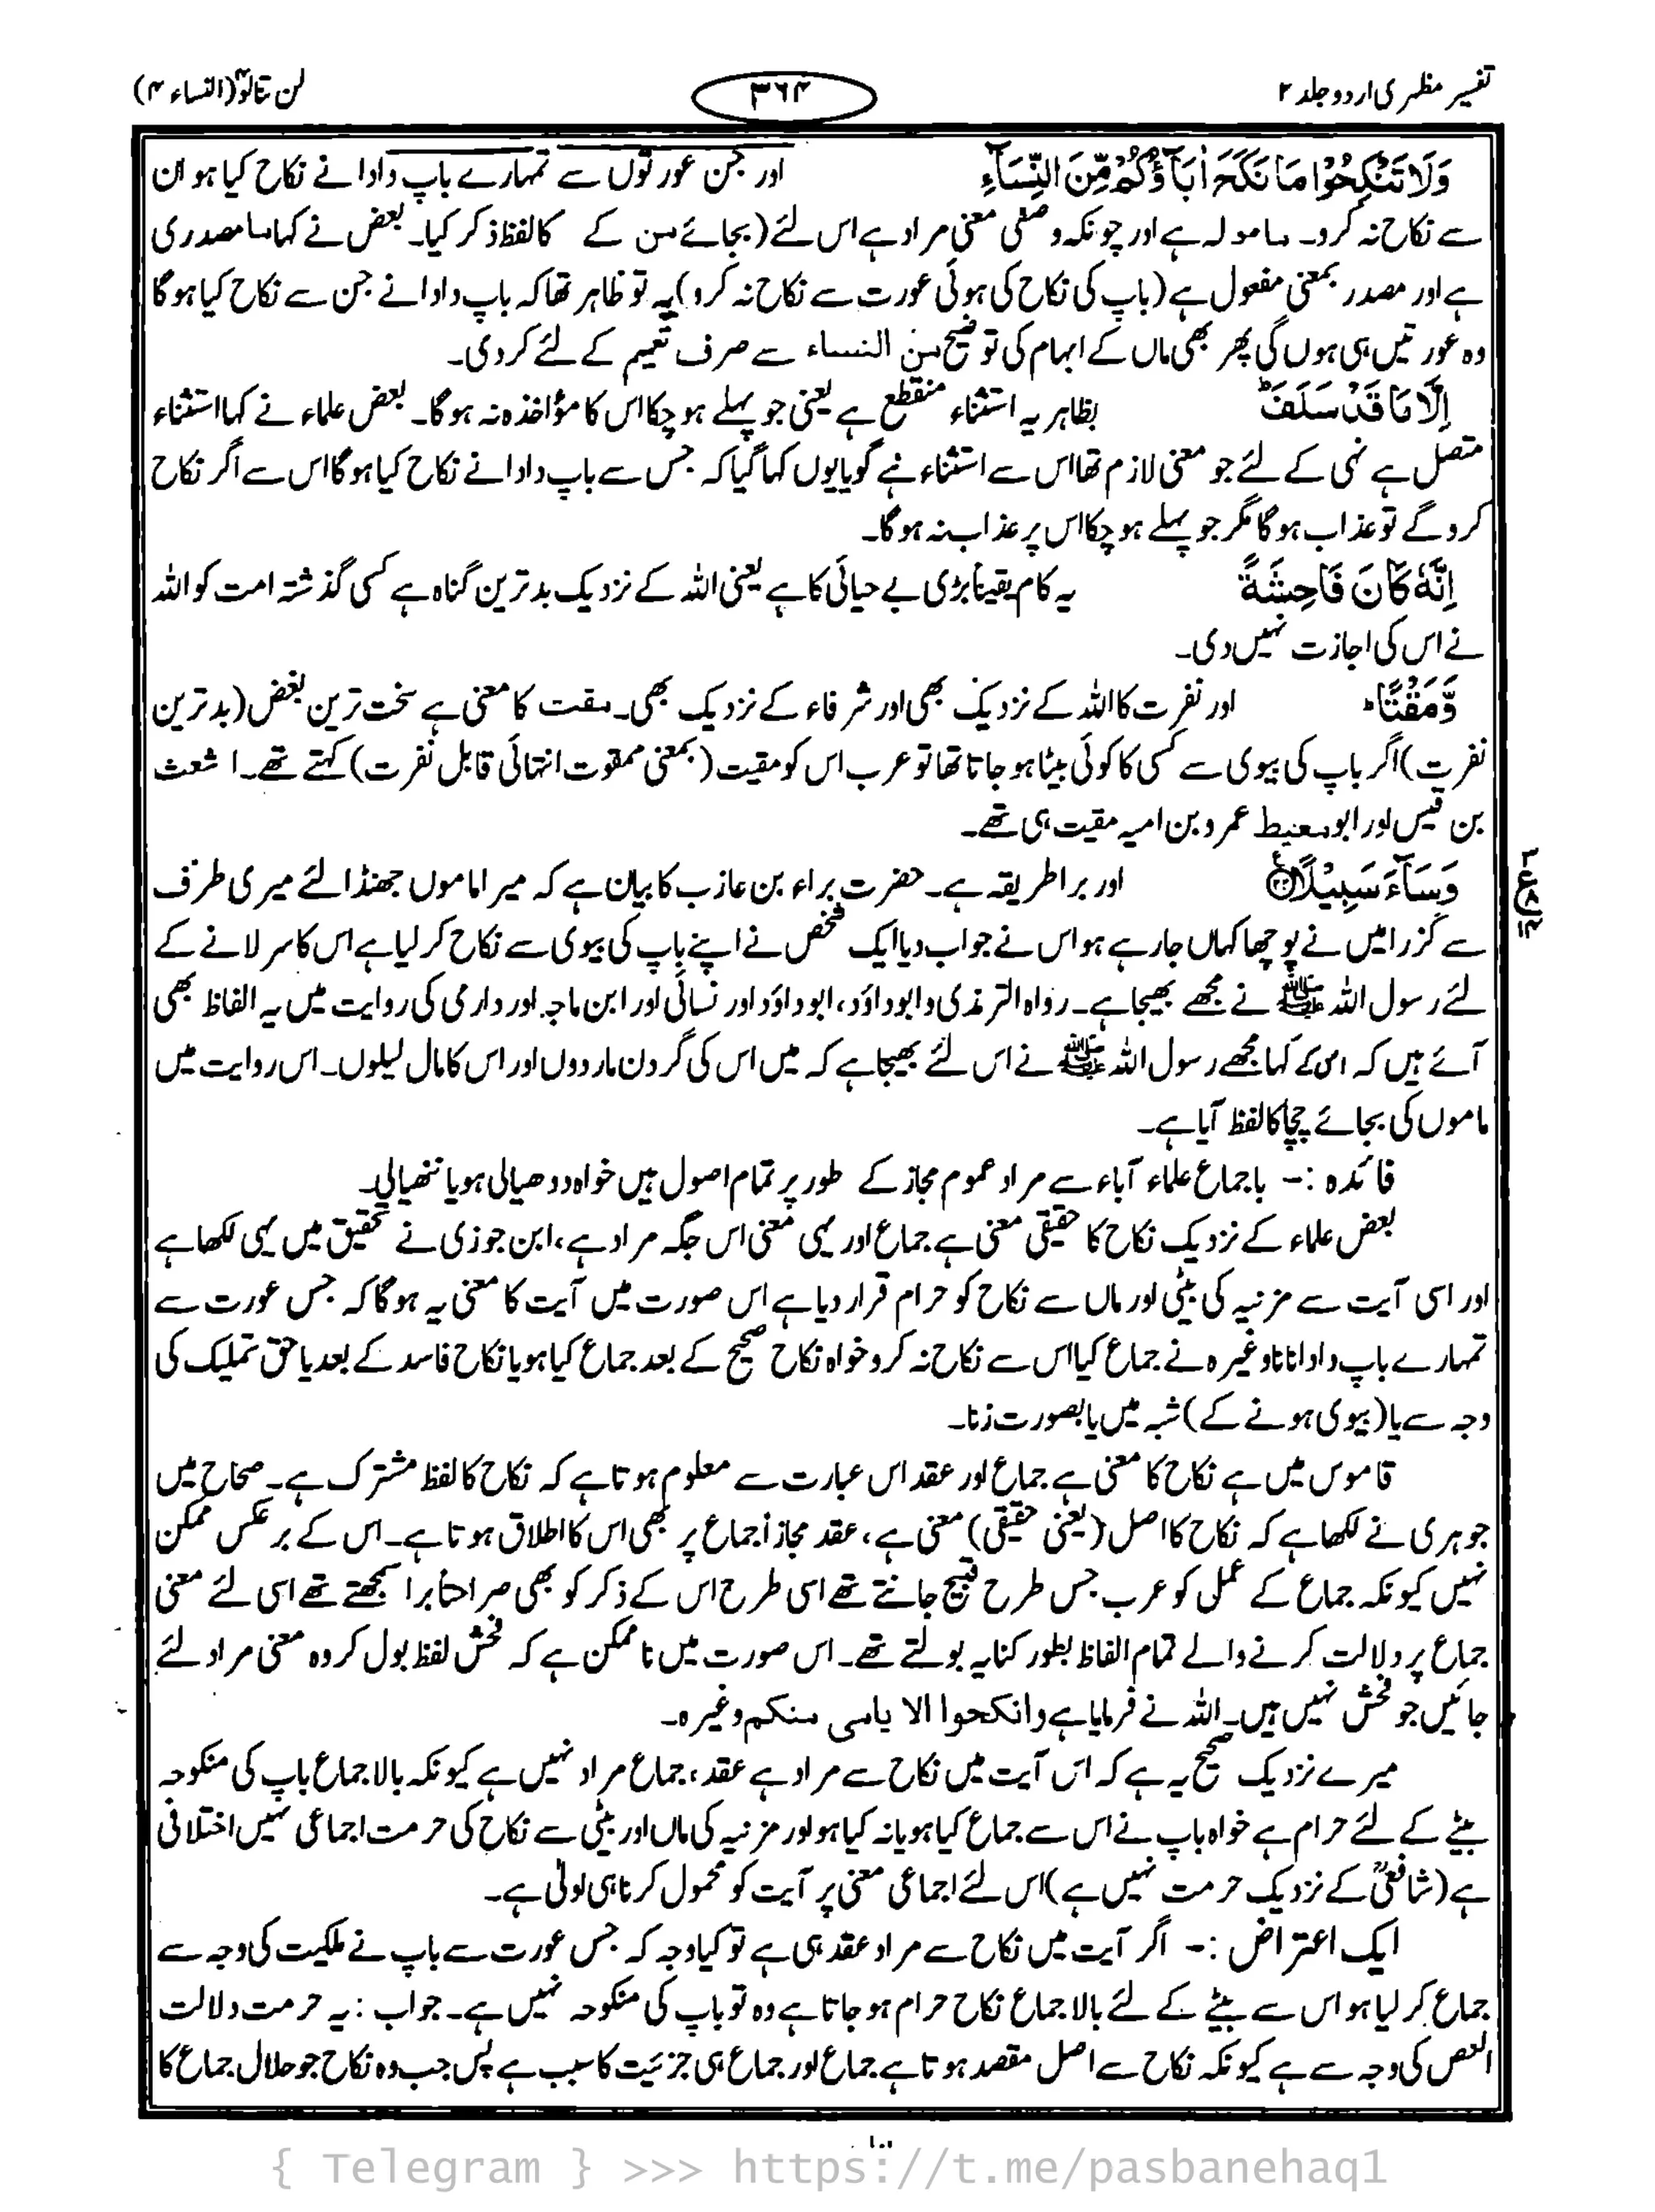 تفسیر مظہری اردو جلد ۲
۳۶۴
لن تنالوا (النساء ۴)
وَلَا تَنْكِحُوْا مَا نَكَحَ اٰبَآؤُكُمْ مِّنَ النِّسَآءِ اور جن عورتوں سے تمہارے باپ دادا نے نکاح کیا ہو ان
سے نکاح نہ کرو۔ ما موصولہ ہے اور چونکہ وصفی معنی مراد ہے اس لئے (بجائے من کے کا لفظ ذکر کیا۔ بعض نے کہا ما مصدری
ہے اور مصدر بمعنی مفعول ہے (باپ کی نکاح کی ہوئی عورت سے نکاح نہ کرو) یہ تو ظاہر تھا کہ باپ دادا نے جن سے نکاح کیا ہوگا
وہ عورتیں ہی ہوں گی پھر بھی ماں کے ابہام کی توضیح من النساء سے صرف تعمیم کے لئے کر دی۔
اِلَّا مَا قَدْ سَلَفَ ؕ بظاہر یہ استثناء منقطع ہے یعنی جو پہلے ہو چکا اس کا مؤاخذہ نہ ہوگا۔ بعض علماء نے کہا استثناء
متصل ہے نہی کے لئے جو معنی لازم تھا اس سے استثناء ہے گویا یوں کہا گیا کہ جس سے باپ دادا نے نکاح کیا ہوگا اس سے اگر نکاح
کرو گے تو عذاب ہوگا مگر جو پہلے ہو چکا اس پر عذاب نہ ہوگا۔
اِنَّهٗ كَانَ فَاحِشَةً یہ کام یقیناً بڑی بے حیائی کا ہے یعنی اللہ کے نزدیک بدترین گناہ ہے کسی گذشتہ امت کو اللہ
نے اس کی اجازت نہیں دی۔
وَّمَقْتًا ؕ اور نفرت کا اللہ کے نزدیک بھی اور شرفاء کے نزدیک بھی۔ مقت کا معنی ہے سخت ترین بغض (بدترین
نفرت) اگر باپ کی بیوی سے کسی کا کوئی بیٹا ہو جاتا تھا تو عرب اس کو مقیت (بمعنی ممقوت انتہائی قابل نفرت) کہتے تھے۔ اشعث
بن قیس اور ابو معیط عمرو بن امیہ مقیت ہی تھے۔
وَسَآءَ سَبِيْلًا ۟ ۲۲ اور برا طریقہ ہے۔ حضرت براء بن عازب کا بیان ہے کہ میرا ماموں جھنڈا لئے میری طرف
سے گزرا میں نے پوچھا کہاں جا رہے ہو اس نے جواب دیا ایک شخص نے اپنے باپ کی بیوی سے نکاح کر لیا ہے اس کا سر لانے کے
لئے رسول اللہ ﷺ نے مجھے بھیجا ہے۔ رواہ الترمذی و ابو داؤد، ابو داؤد اور نسائی اور ابن ماجہ اور دارمی کی روایت میں یہ الفاظ بھی
آئے ہیں کہ اس کے کہا مجھے رسول اللہ ﷺ نے اس لئے بھیجا ہے کہ میں اس کی گردن مار دوں اور اس کا مال لیلوں۔ اس روایت میں
ماموں کی بجائے چچا کا لفظ آیا ہے۔
فائدہ :- باجماع علماء آباء سے مراد عموم مجاز کے طور پر تمام اصول ہیں خواہ دوھیالی ہو یا ننھیالی۔
بعض علماء کے نزدیک نکاح کا حقیقی معنی ہے جماع اور یہی معنی اس جگہ مراد ہے، ابن جوزی نے تحقیق میں یہی لکھا ہے
اور اسی آیت سے مزنیہ کی بیٹی اور ماں سے نکاح کو حرام قرار دیا ہے اس صورت میں آیت کا معنی یہ ہوگا کہ جس عورت سے
تمہارے باپ دادا نانا وغیرہ نے جماع کیا اس سے نکاح نہ کرو خواہ نکاح صحیح کے بعد جماع کیا ہو یا نکاح فاسد کے بعد یا حق تملیک کی
وجہ سے یا (بیوی ہونے کے) شبہ میں یا بصورت زنا۔
قاموس میں ہے نکاح کا معنی ہے جماع اور عقد اس عبارت سے معلوم ہوتا ہے کہ نکاح کا لفظ مشترک ہے۔ صحاح میں
جوہری نے لکھا ہے کہ نکاح کا اصل (یعنی حقیقی) معنی ہے، عقد مجازاً جماع پر بھی اس کا اطلاق ہوتا ہے۔ اس کے برعکس ممکن
نہیں کیونکہ جماع کے عمل کو عرب جس طرح قبیح جانتے تھے اسی طرح اس کے ذکر کو بھی صراحتاً برا سمجھتے تھے اسی لئے معنی
جماع پر دلالت کرنے والے تمام الفاظ بطور کنایہ بولتے تھے۔ اس صورت میں ناممکن ہے کہ فحش لفظ بول کر وہ معنی مراد لئے
جائیں جو فحش نہیں ہیں۔ اللہ نے فرمایا ہے وانکحوا الا یامی منکم وغیرہ۔
میرے نزدیک صحیح یہ ہے کہ اس آیت میں نکاح سے مراد ہے عقد، جماع مراد نہیں ہے کیونکہ بالاجماع باپ کی منکوحہ
بیٹے کے لئے حرام ہے خواہ باپ نے اس سے جماع کیا ہو یا نہ کیا ہو اور مزنیہ کی ماں اور بیٹی سے نکاح کی حرمت اجماعی نہیں اختلافی
ہے (شافعیؒ کے نزدیک حرمت نہیں ہے) اس لئے اجماعی معنی پر آیت کو محمول کرنا ہی اولیٰ ہے۔
ایک اعتراض :- اگر آیت میں نکاح سے مراد عقد ہی ہے تو کیا وجہ کہ جس عورت سے باپ نے ملکیت کی وجہ سے
جماع کر لیا ہو اس سے بیٹے کے لئے بالاجماع نکاح حرام ہو جاتا ہے وہ تو باپ کی منکوحہ نہیں ہے۔ جواب : یہ حرمت دلالت
النص کی وجہ سے ہے کیونکہ نکاح سے اصل مقصد ہوتا ہے جماع اور جماع ہی جزئیت کا سبب ہے پس جب وہ نکاح جو حلال جماع کا
{ Telegram } >>> https://t.me/pasbanehaq1